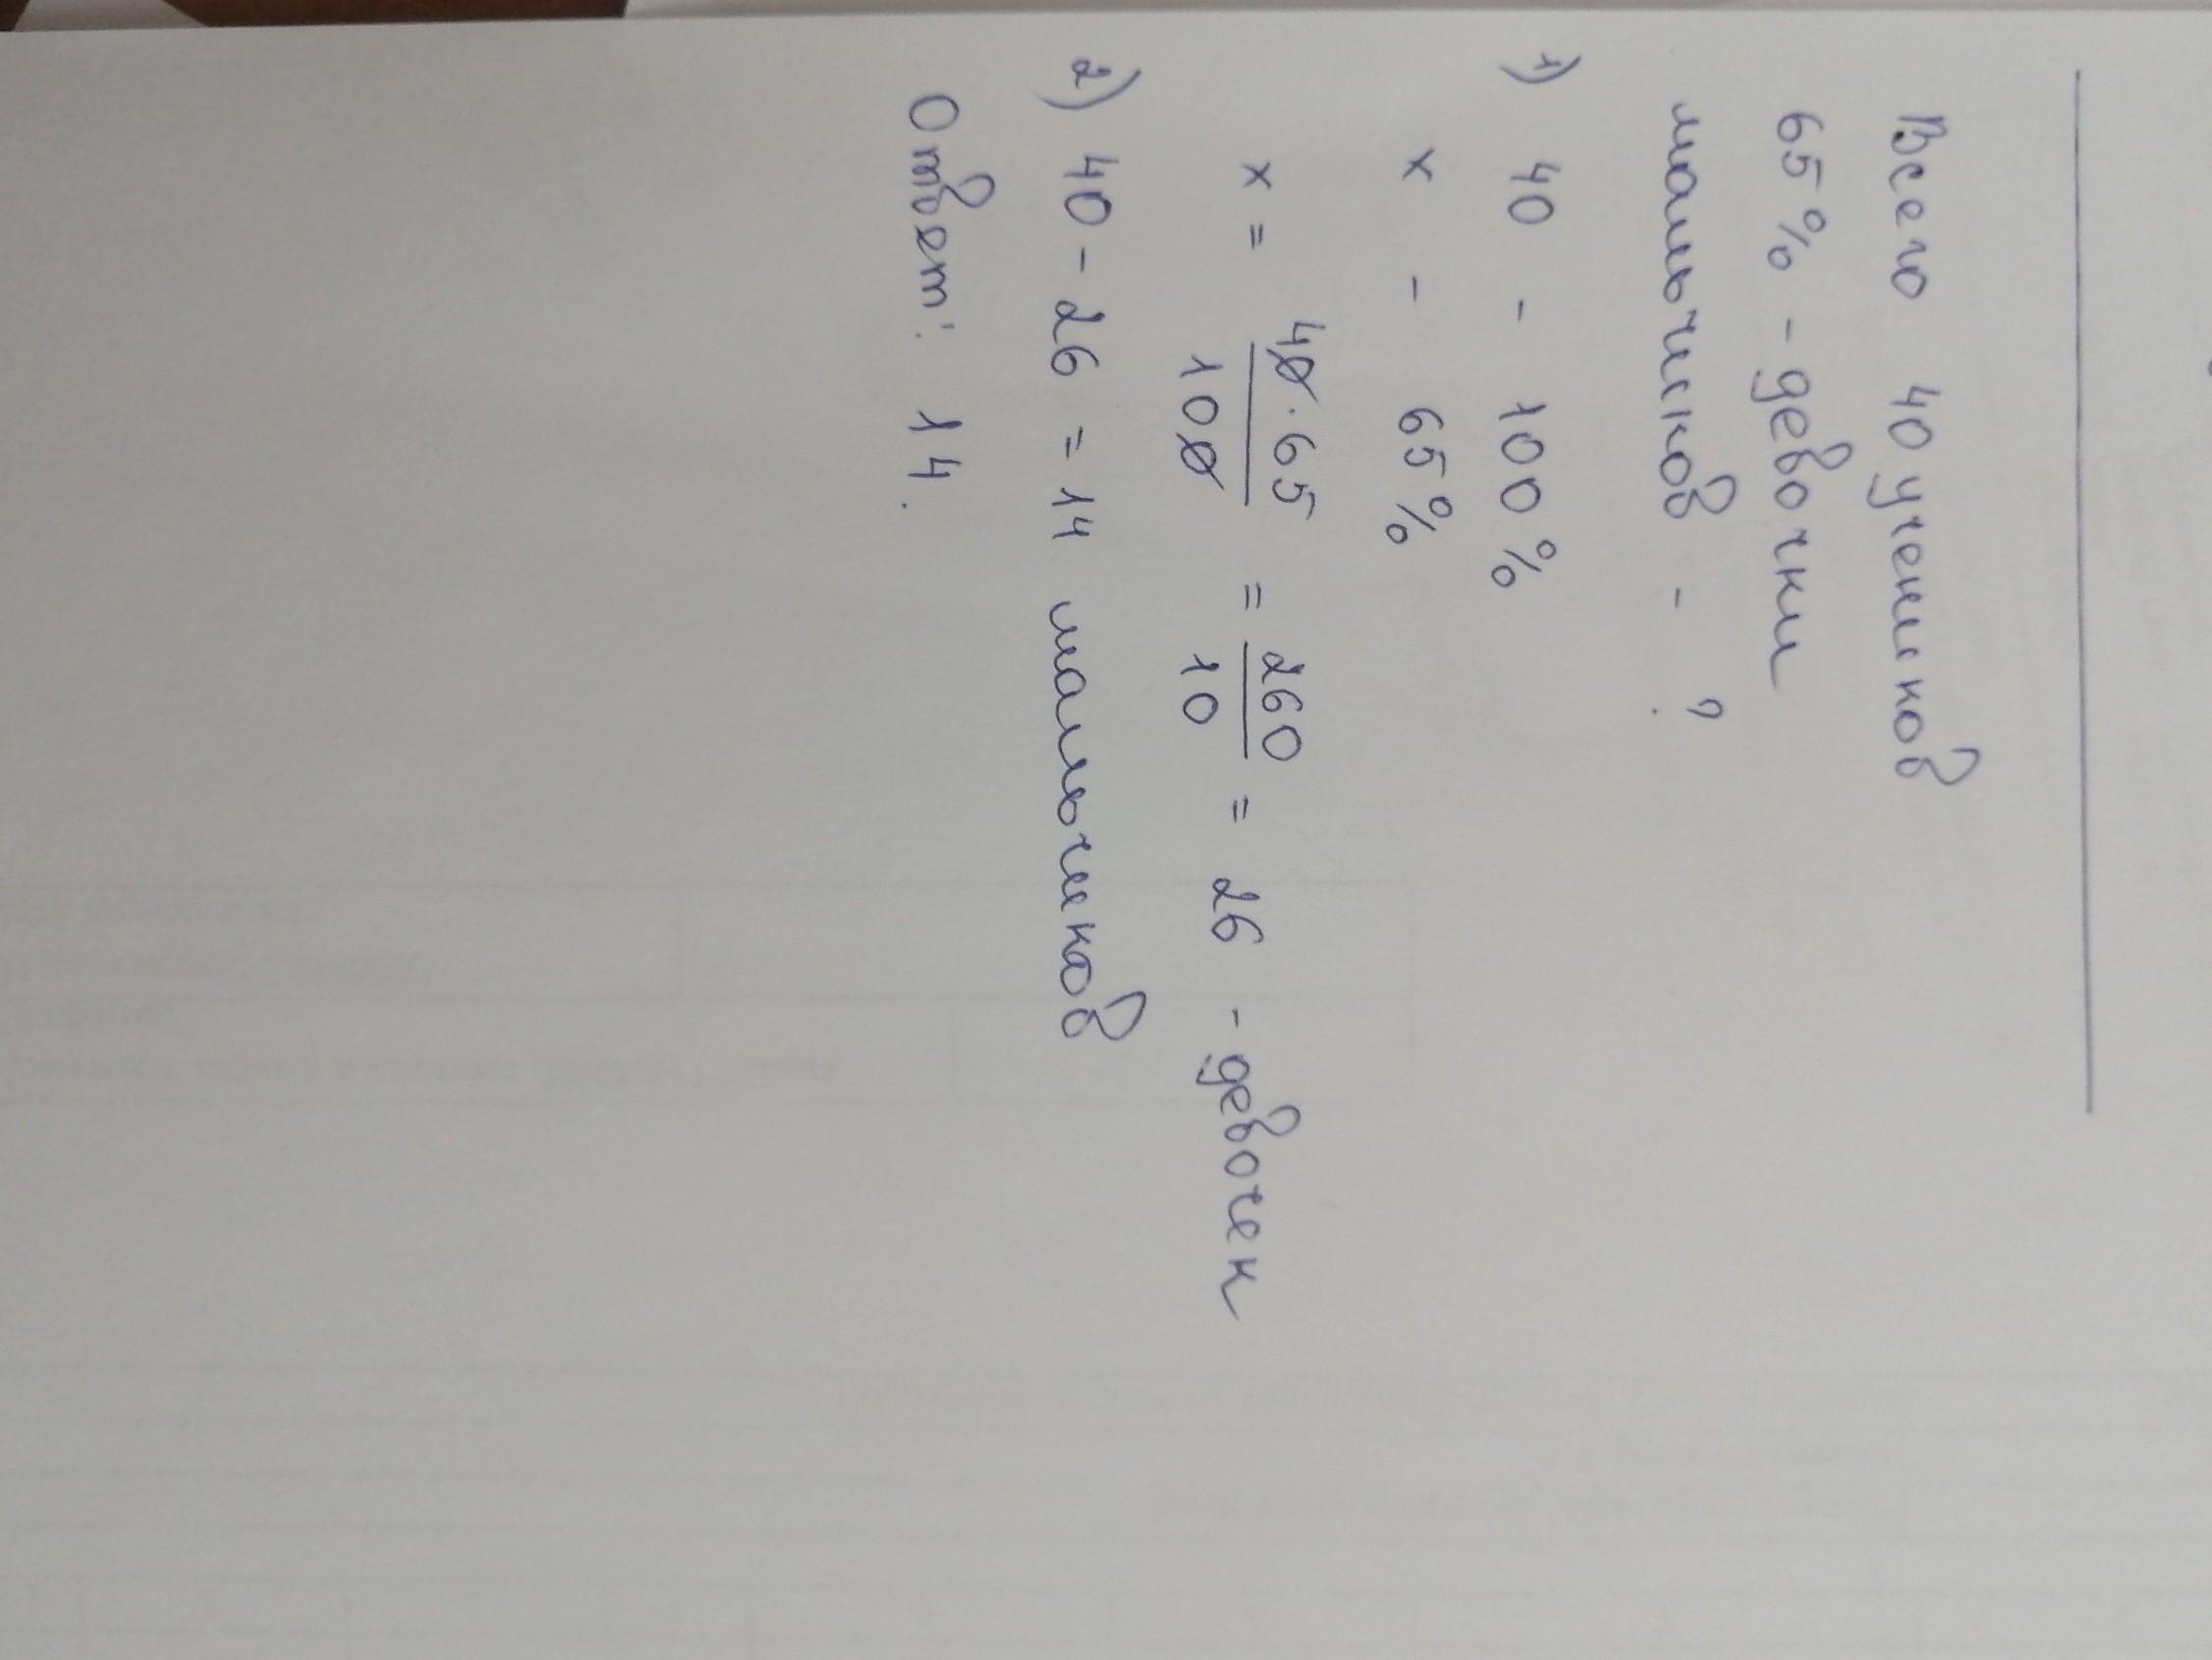 Всего 40 учеников
65% - девочки
мальчиков - ?
1) 40 - 100%
x - 65%
x = 40·65/100 = 260/10 = 26 - девочек
2) 40 - 26 = 14 мальчиков
Ответ: 14.